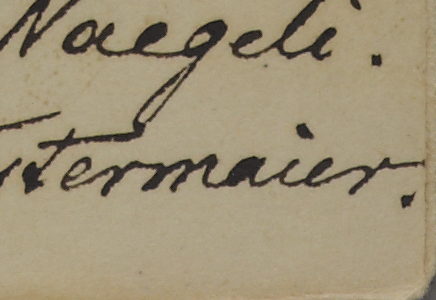 Naegeli.
stermaier.